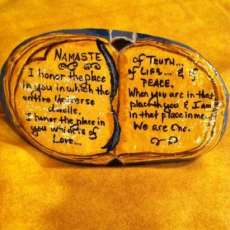 NAMASTE
I honor the place
in you in which the
entire Universe
dwells.
I honor the place in
you which is of
Love...
of TRUTH...
of LIFE... & of
PEACE.
When you are in that
place in you & I am
in that place in me
We are One.